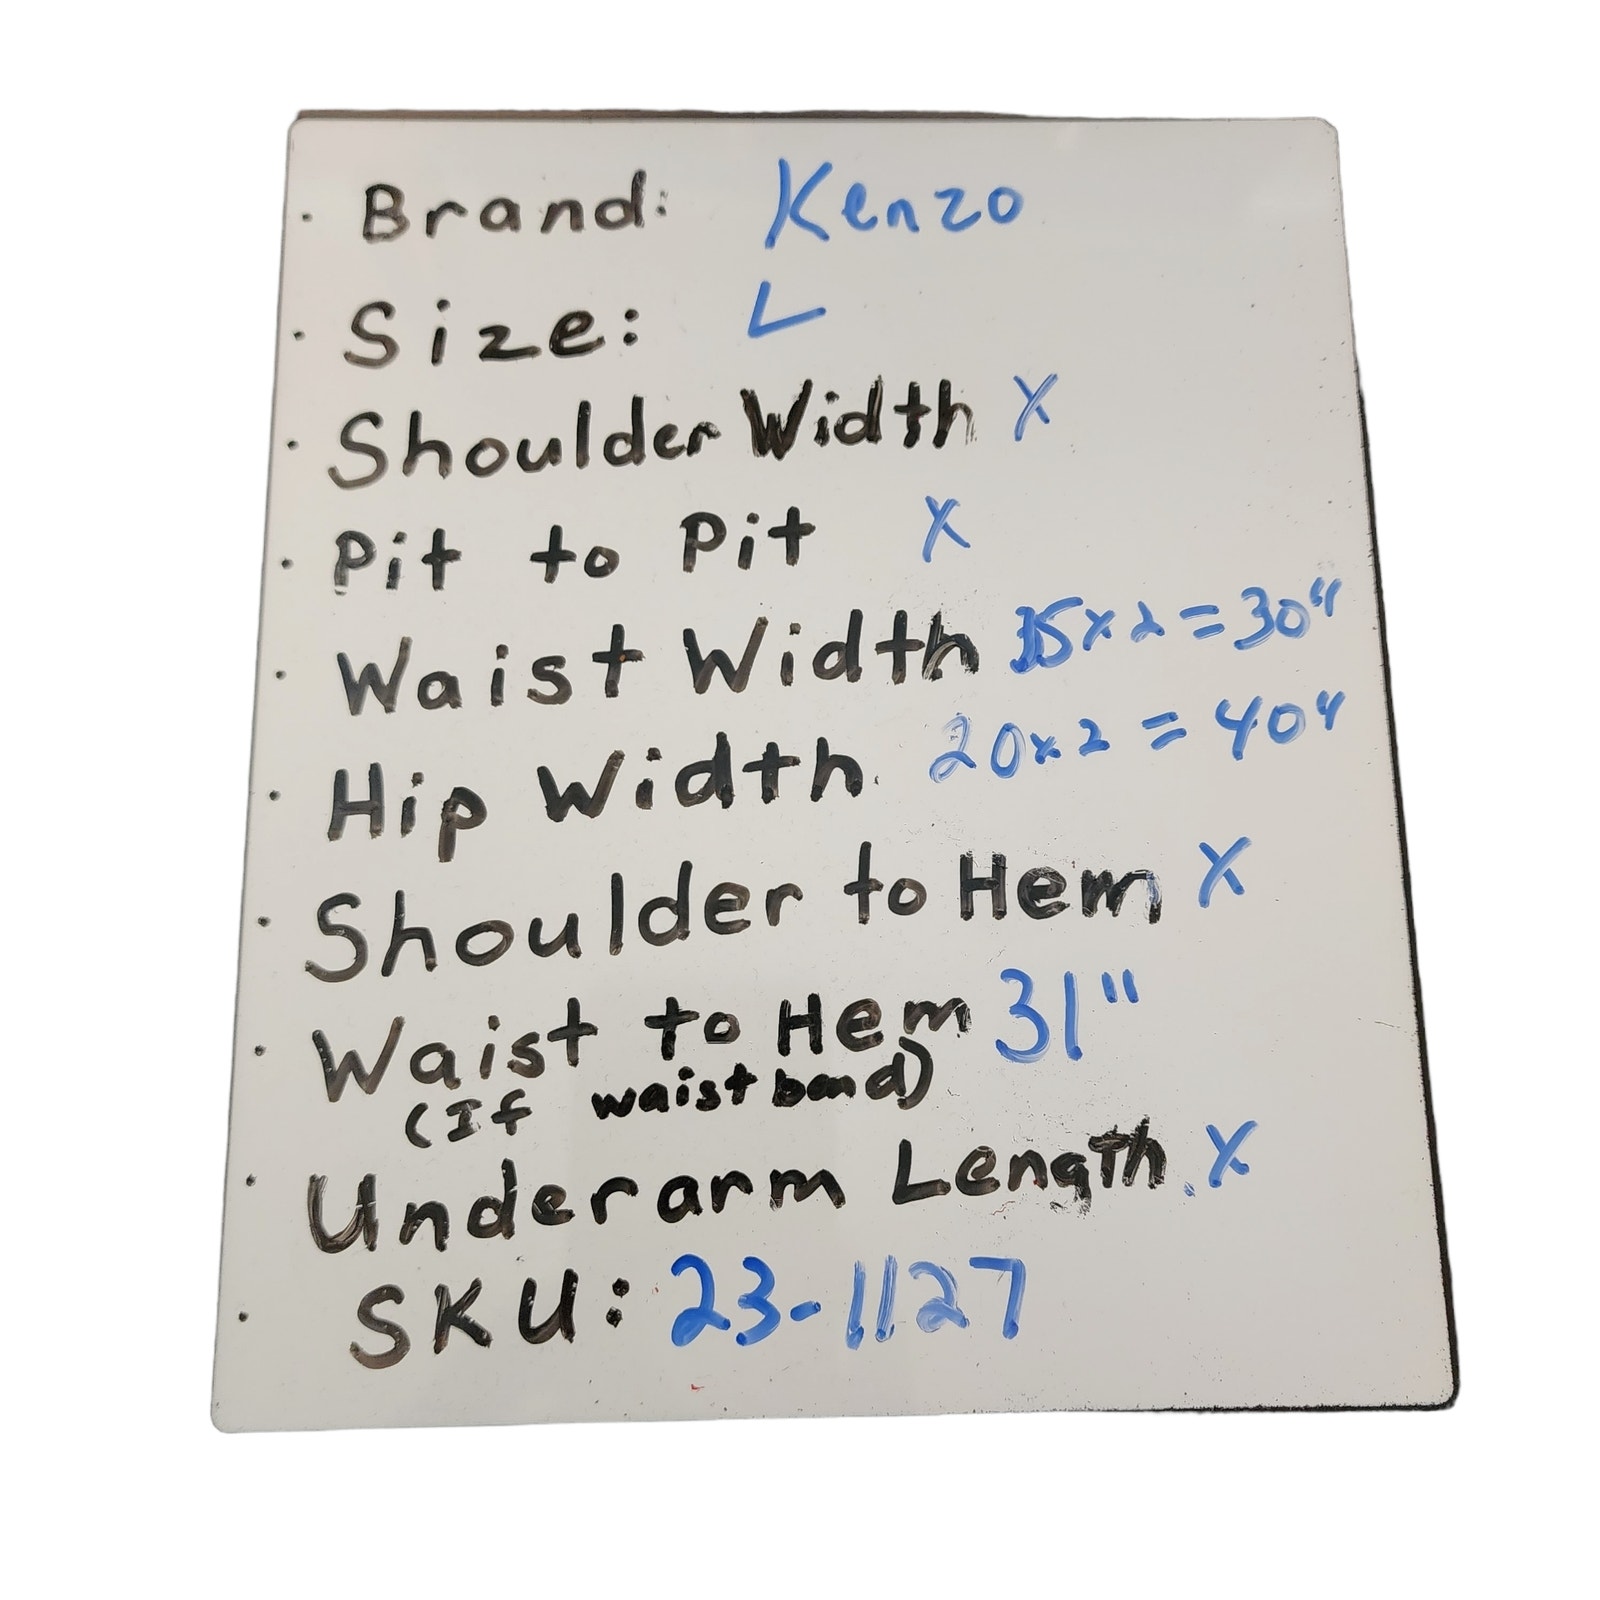 · Brand: Kenzo
· Size: L
· Shoulder Width X
· Pit to Pit X
· Waist Width 15x2=30"
· Hip Width 20x2=40"
· Shoulder to Hem X
· Waist to Hem 31"
(If waist band)
· Underarm Length X
· SKU: 23-1127